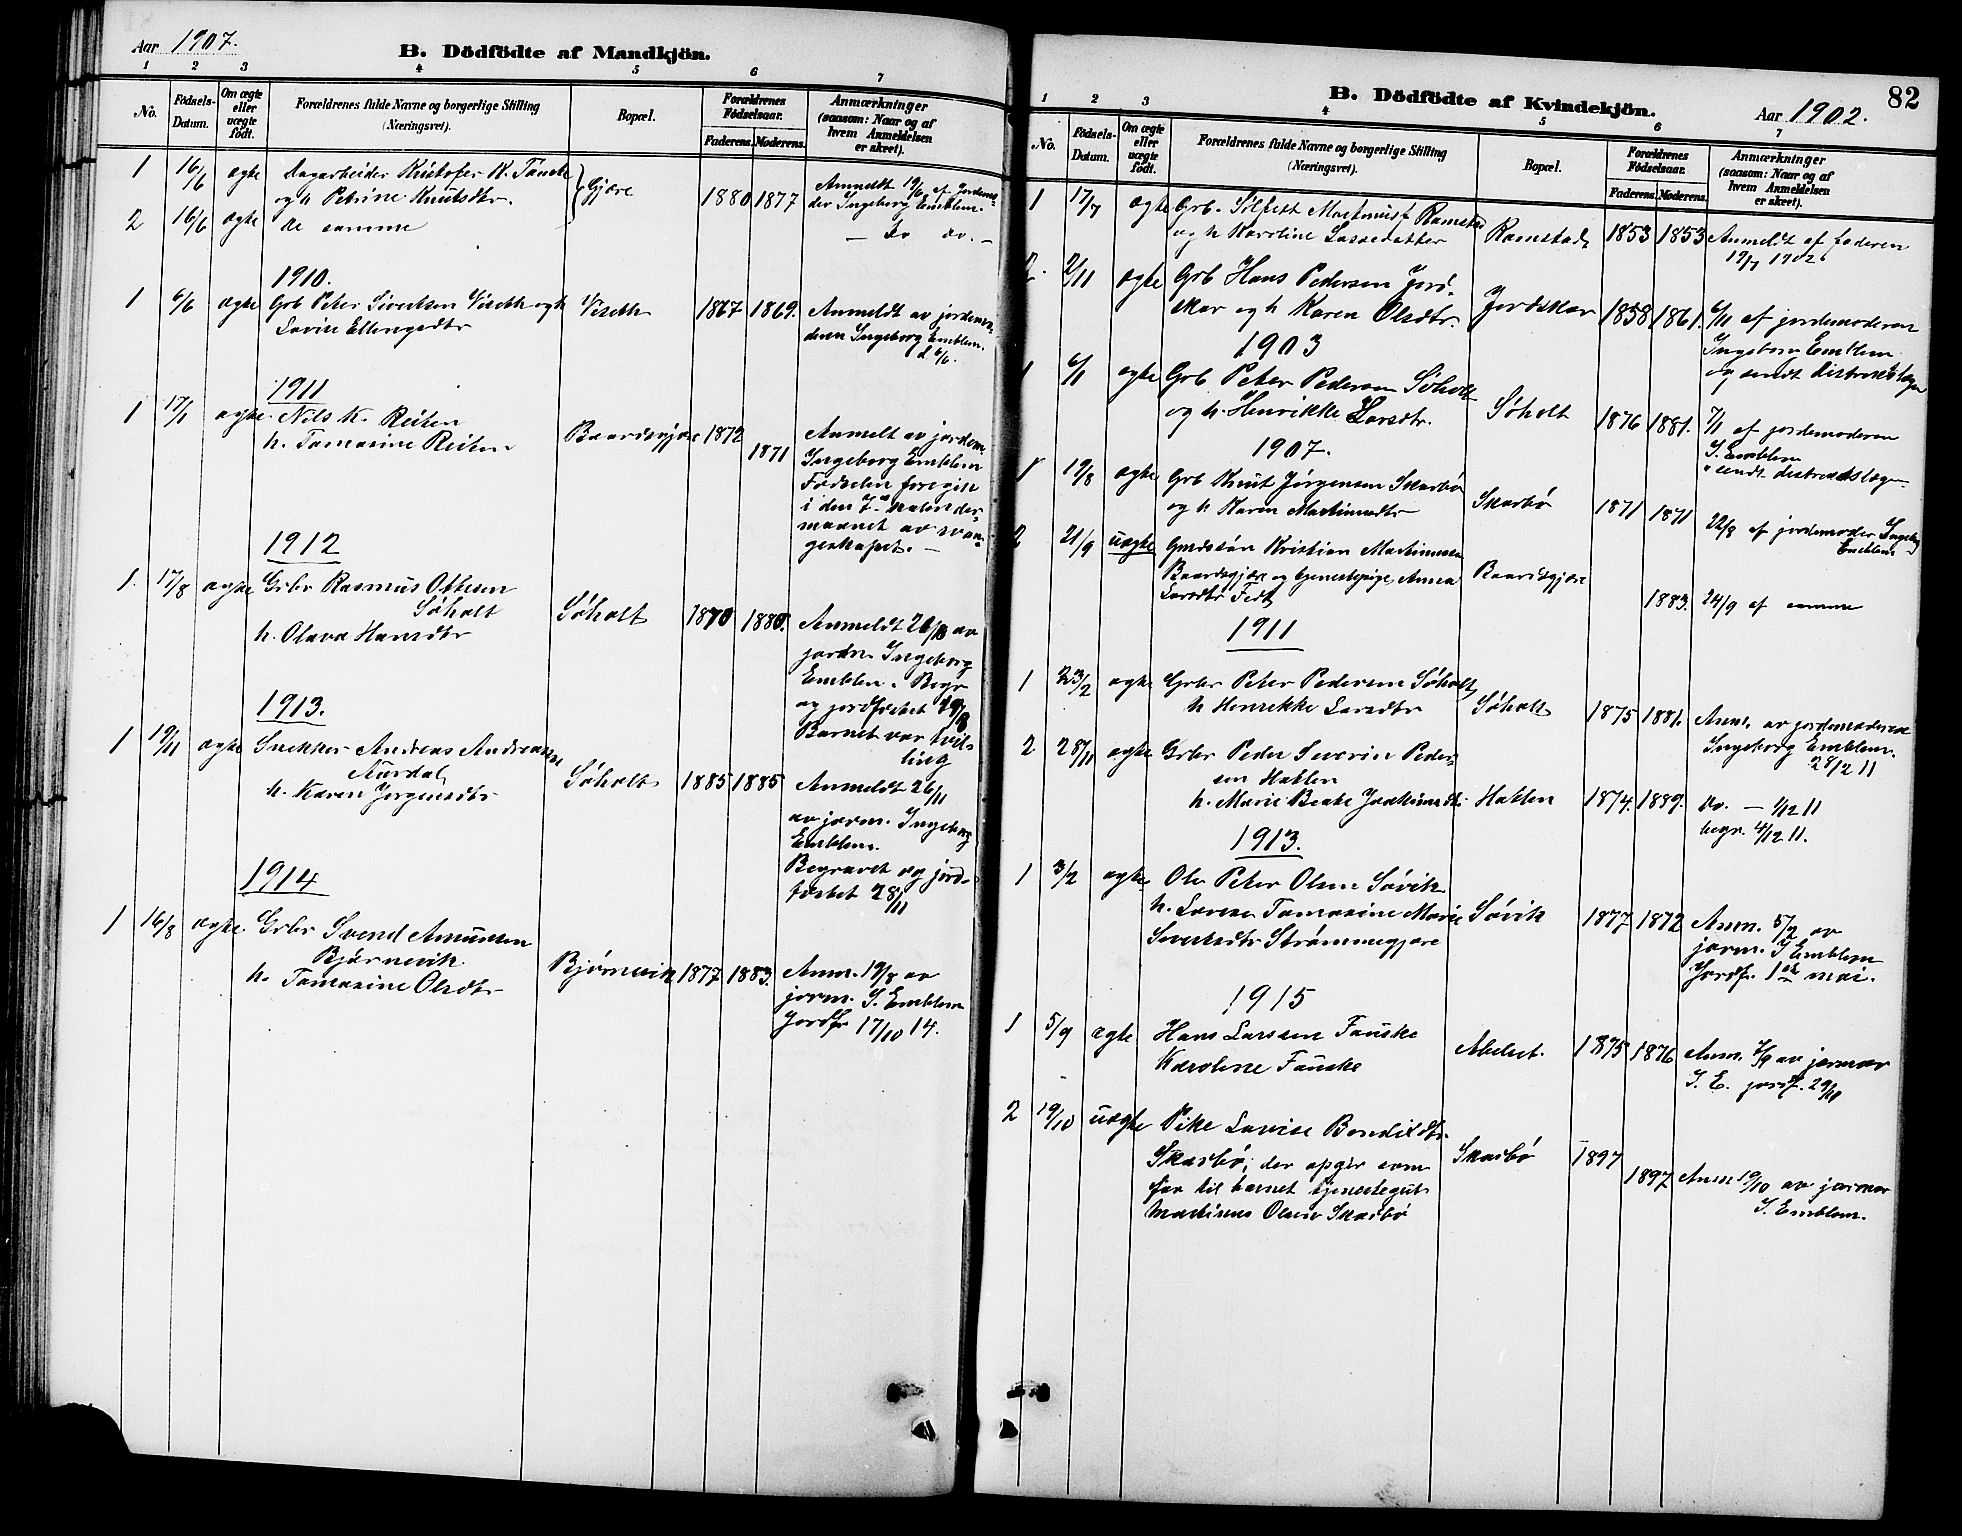 Aar 1907.
B. Dödfödte af Mandkjön.
1 2 3 4 5 6 7
No. Fødsels-Datum. Om ægte eller uægte født. Forældrenes fulde Navne og borgerlige Stilling (Næringsvei). Bopæl. Forældrenes Fødselsaar. Faderens. Moderens. Anmærkninger (saasom: Naar og af hvem Anmeldelsen er skeet).
1 16/6 ægte Dagarbeider Kristofer K. Gjære 1880 1877 Anmeldt 19/6 af Jordemo-
og h Petrine Knutsdtr. der Ingeborg Emblem.
2 16/6 ægte de samme — Do do. —
1910.
1 6/6 ægte Grb Peter Sivertsen Viseth og h Viseth 1867 1869. Anmeldt av jordemo-
Lovise Ellingsdtr deren Ingeborg Emblem.
d. 6/6.
1911
1 17/1 ægte Nils K. Reiten Baardsgjære 1872
h. Tomasine Reiten 1871 Anmelt av jordem.
Ingeborg Emblem
Fødselen foregik
i den 7de kalender-
maanet av svan-
gerskapet. —
1912
1. 17/8 ægte Grbr Rasmus Ottesen
Søholt Søholt 1870 1880. Anmeldt 26/8 av
h. Olava Hansdtr jordm. Ingeborg
Emblem. Begr
og jordfæstet 29/8
Barnet var tvil-
ling
1913.
1 19/11 ægte Snekker Andreas Andreassen
Aurdal Søholt 1885 1885 Anmeldt 26/11
h. Karen Jørgensdtr av jorm. Ingeborg
Emblem.
Begravet og jord-
fæstet 28/11
1914
1 16/8 ægte Grbr Svend Amunsen
Bjørnevik Bjørnevik 1877 1883. Anm. 19/8 av
h. Tomasine Olsdtr jorm. I. Emblem
Jordf. 17/10 14.
82
B. Dödfödte af Kvindekjön.
Aar 1902.
1 2 3 4 5 6 7
No. Fødsels-Datum. Om ægte eller uægte født. Forældrenes fulde Navne og borgerlige Stilling (Næringsvei). Bopæl. Forældrenes Fødselsaar. Faderens. Moderens. Anmærkninger (saasom: Naar og af hvem Anmeldelsen er skeet).
1 17/7 ægte Grb. Sølfest Martinus Ramstad Ramstad 1853 1853 Anmeldt af faderen
og h Karoline Lassedatter 19/7 1902
2. 2/11 ægte Grb Hans Pedersen Jord-
skar og h Karen Olsdtr. Jordskar 1858. 1861. 6/11 af jordemoderen
Ingeborg Emblem
og sendt distriktslægen
1903
1 6/1 ægte Grb Peter Pedersen Søholt
og h. Henrikke Larsdtr. Søholt 1876 1881. 7/1 af jordemoderen
I. Emblem
" sendt distriktslægen
1907.
1 19/8 ægte Grb Knut Jørgensen Skarbø
og h Karen Martinusdtr Skarbø 1871 1871 22/8 af jordemoder Ingeborg
Emblem
2 21/9 uægte Gaardssøn Kristian Martinussen
Baardsgjære og tjenestepige Anna Baardsgjære
Larsdtr Fedt 1883. 24/9 af samme
1911
1 23/2 ægte Grbr Peter Pedersen Søholt
h Henrikke Larsdtr Søholt 1875 1881. Anm. av jordemoderen
Ingeborg Emblem.
28/2 11
2 28/11 ægte Grbr Peder Severin Peder-
sen Hatlen
h. Marie Beate Joakimsdtr. Hatlen 1874. 1889. Do. — 1/12 11
begr. 4/12 11.
1913.
1 3/2 ægte Ole Peter Olsen Søvik
h. Lovise Tomasine Marie Søvik 1877 1872 Anm. 5/2 av
Sivertsdtr Strømmegjære jorm. I Emblem
Jordf. 1ste mai.
1915
1 5/9 ægte Hans Larssen Fauske
Karoline Fauske Abelset. 1875 1876 Anm. 7/9 av jormor
I. E. jordf. 29/11
2 19/10 uægte Pike Lovise Bendiktdtr.
Skarbø, der opgir som Skarbø 1897
far til barnet tjenestegut 1897 Anm 19/10 av jormor
Martinus Olsen Skarbø I. Emblem.